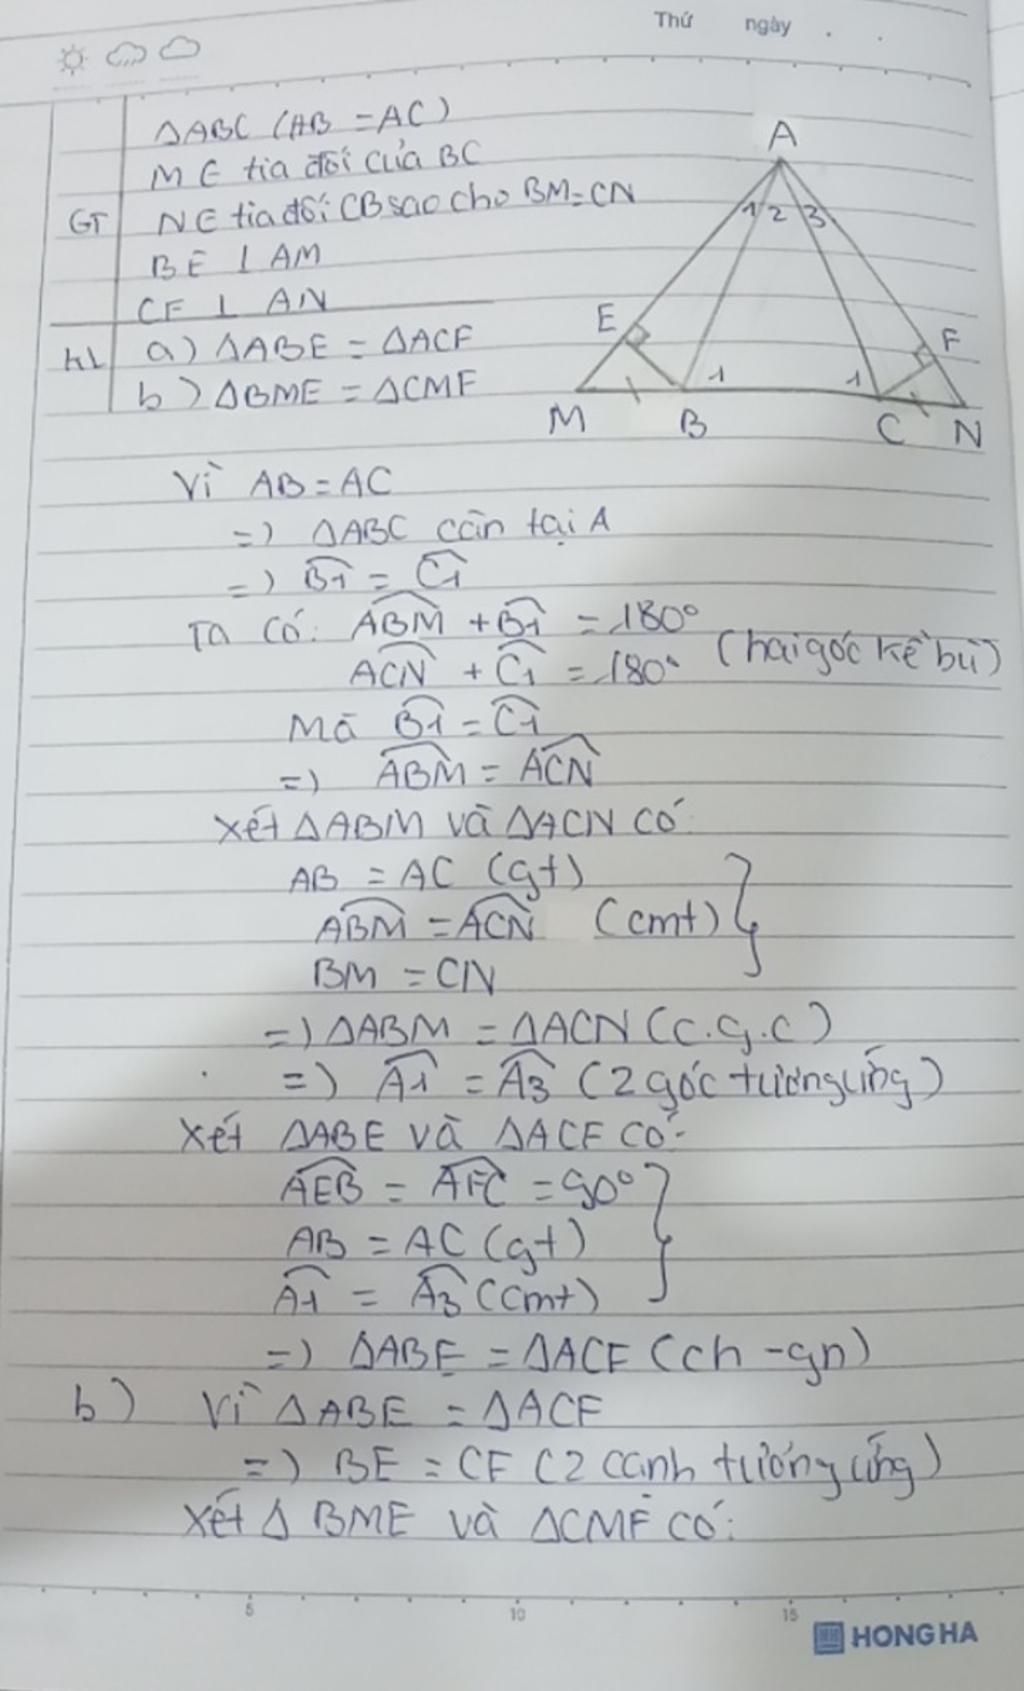 Thứ ngày . .
ΔABC (AB = AC)
M ∈ tia đối của BC
GT N ∈ tia đối CB sao cho BM = CN
BE ⊥ AM
CF ⊥ AN
KL a) ΔABE = ΔACF
b) ΔBME = ΔCMF
A
1 2 3
E F
1 1
M B C N
Vì AB = AC
=) ΔABC cân tại A
=) B̂1 = Ĉ1
Ta có: ABM̂ + B̂1 = 180°
ACN̂ + Ĉ1 = 180° (hai góc kề bù)
Mà B̂1 = Ĉ1
=) ABM̂ = ACN̂
Xét ΔABM và ΔACN có:
AB = AC (gt)
ABM̂ = ACN̂ (cmt) }
BM = CN
=) ΔABM = ΔACN (c.g.c)
=) Â1 = Â3 (2 góc tương ứng)
Xét ΔABE và ΔACF có:
AEB̂ = AFĈ = 90° }
AB = AC (gt)
Â1 = Â3 (cmt)
=) ΔABE = ΔACF (ch - gn)
b) Vì ΔABE = ΔACF
=) BE = CF (2 cạnh tương ứng)
Xét Δ BME và ΔCMF có:
5 10 15
HONG HA